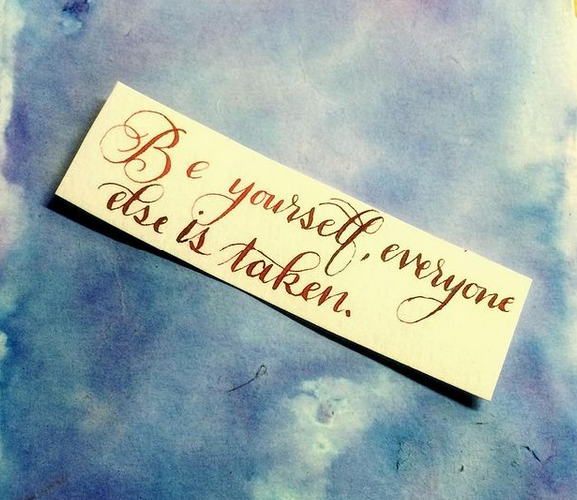 Be yourself, everyone
else is taken.